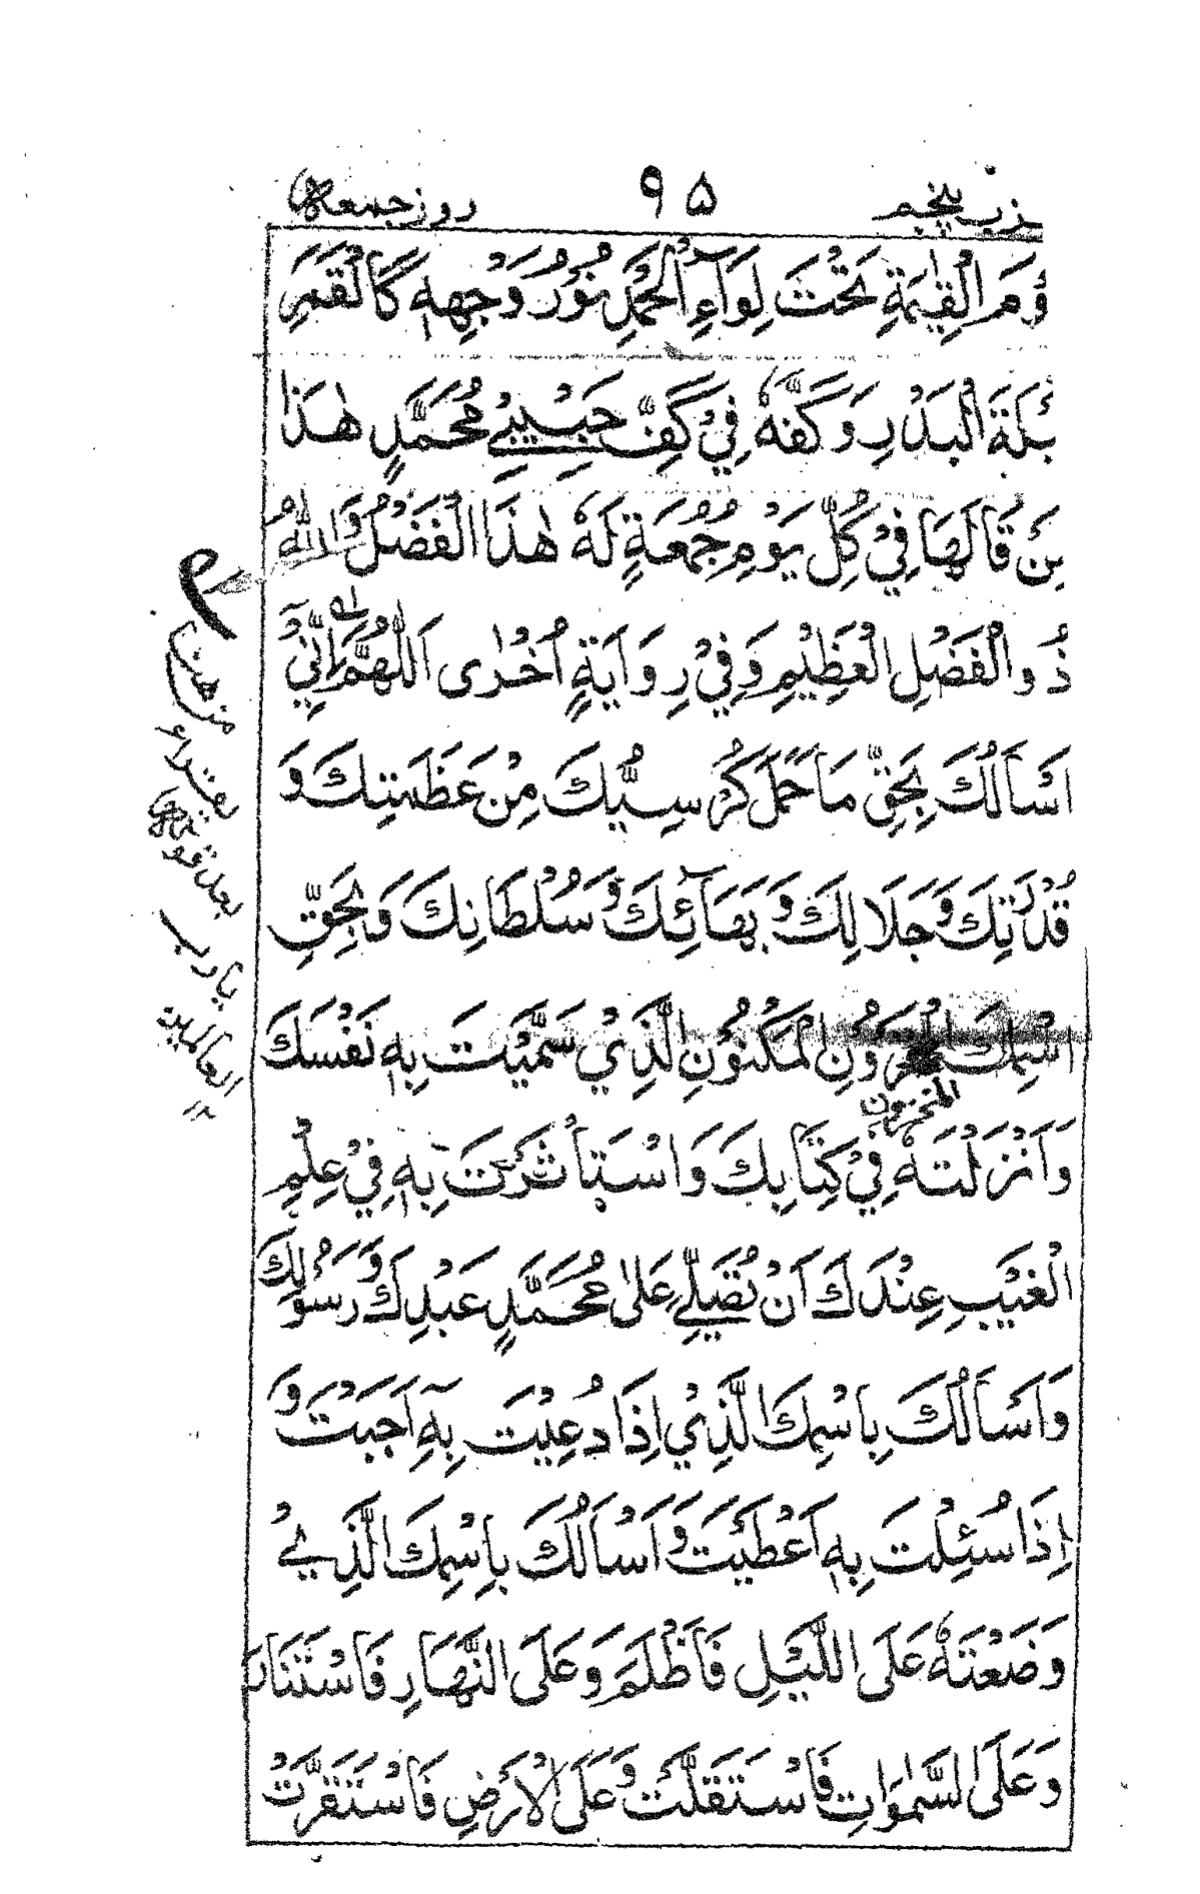 زب پنجم ۹۵ روز جمعه
وْمَ الْقِيٰمَةِ تَحْتَ لِوَآءِ الْحَمْدِ نُوْرُ وَجْهِهٖ كَالْقَمَرِ
يْلَةَ الْبَدْرِ وَكَفُّهٗ فِيْ كَفِّ حَبِيْبِيْ مُحَمَّدٍ هٰذَا
مَنْ قَالَهَا فِيْ كُلِّ يَوْمِ جُمُعَةٍ لَهٗ هٰذَا الْفَضْلُ وَاللّٰهُ
ذُو الْفَضْلِ الْعَظِيْمِ وَفِيْ رِوَايَةٍ اُخْرٰى اَللّٰهُمَّ اِنِّيْٓ
اَسْأَلُكَ بِحَقِّ مَا حَمَلَ كُرْسِيُّكَ مِنْ عَظَمَتِكَ وَ
قُدْرَتِكَ وَجَلَالِكَ وَبَهَآئِكَ وَسُلْطَانِكَ وَبِحَقِّ
اسْمِكَ الْمَخْزُوْنِ الْمَكْنُوْنِ الَّذِيْ سَمَّيْتَ بِهٖ نَفْسَكَ
المخزون
وَاَنْزَلْتَهٗ فِيْ كِتَابِكَ وَاسْتَأْثَرْتَ بِهٖ فِيْ عِلْمِ
الْغَيْبِ عِنْدَكَ اَنْ تُصَلِّيَ عَلٰى مُحَمَّدٍ عَبْدِكَ وَرَسُوْلِكَ
وَاَسْأَلُكَ بِاسْمِكَ الَّذِيْ اِذَا دُعِيْتَ بِهٖٓ اَجَبْتَ وَ
اِذَا سُئِلْتَ بِهٖ اَعْطَيْتَ وَاَسْأَلُكَ بِاسْمِكَ الَّذِيْ
وَضَعْتَهٗ عَلَى اللَّيْلِ فَاَظْلَمَ وَعَلَى النَّهَارِ فَاسْتَنَارَ
وَعَلَى السَّمٰوَاتِ فَاسْتَقَلَّتْ وَعَلَى الْاَرْضِ فَاسْتَقَرَّتْ
من هنا
يقراء
بعد قوله
يا رب
العالمين
۱۲